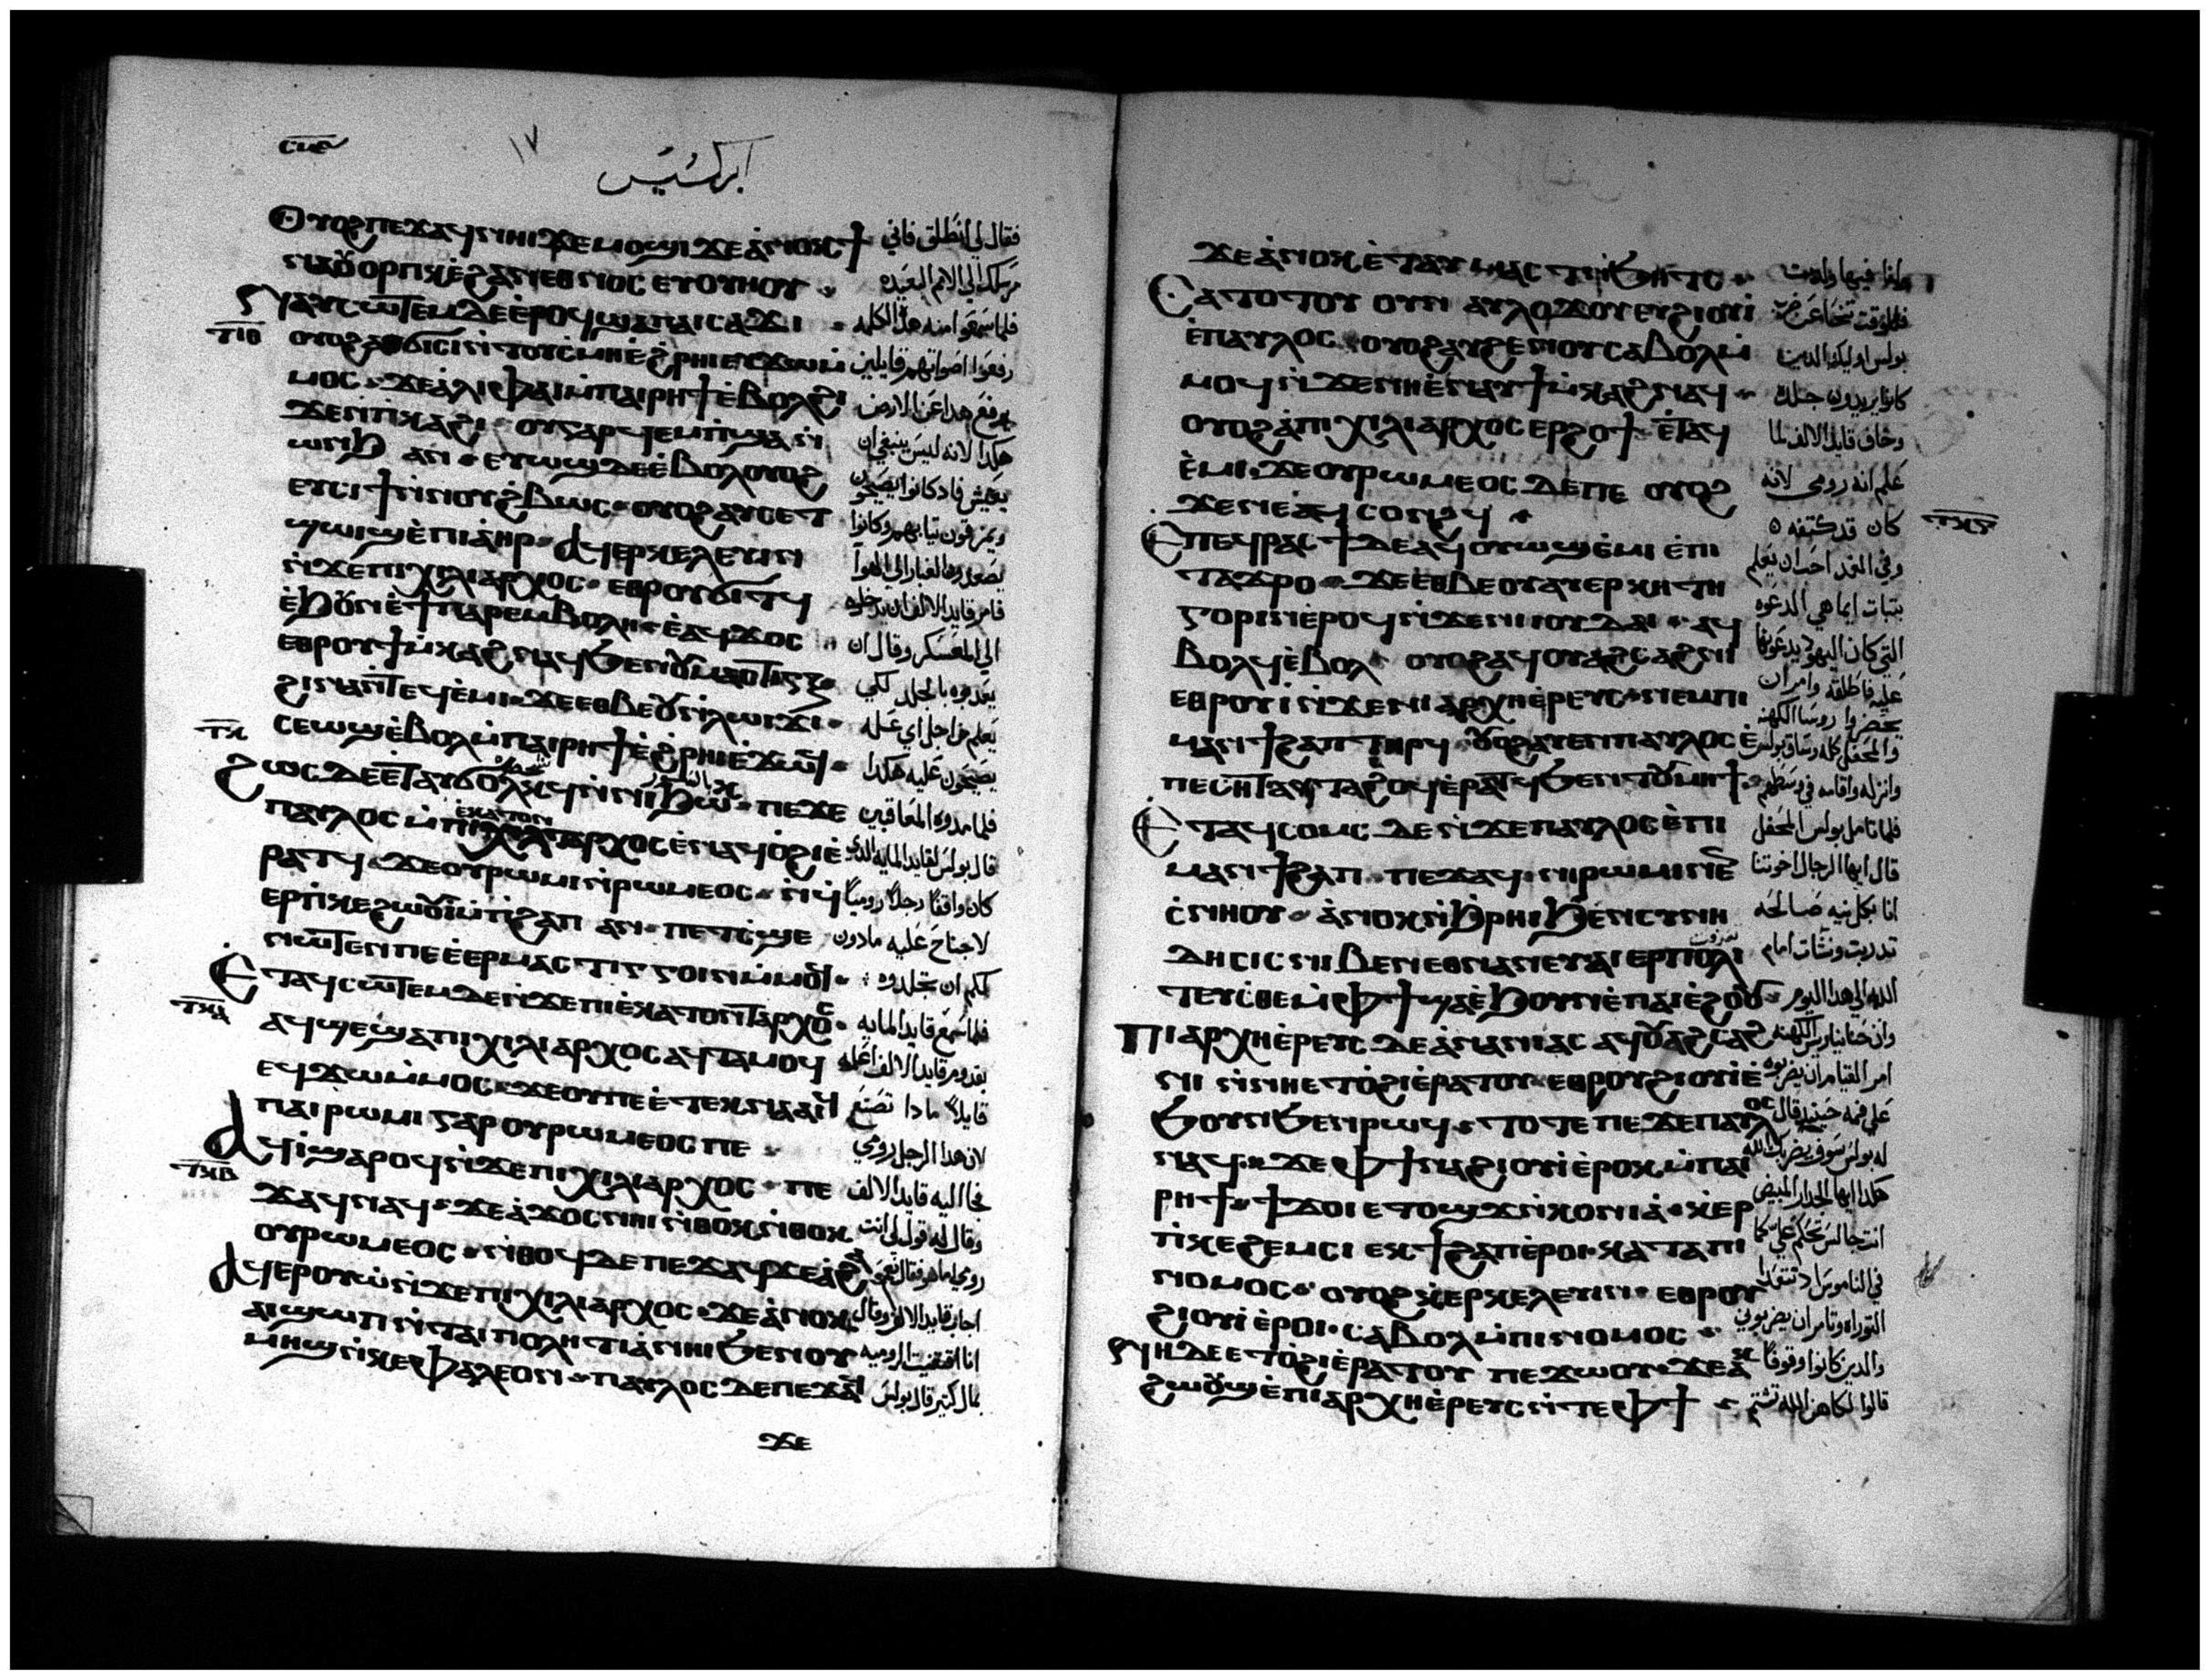 ⲥⲙⲉ ١٧
ابركسيس
Ⲟⲩⲟϩ ⲡⲉϫⲁϥ ⲛⲏⲓ ϫⲉ ⲙⲟϣⲓ ϫⲉ ⲁⲛⲟⲕ ϯ فقال لي انطلق فاني
ⲛⲁⲟⲩⲟⲣⲡⲕ ⲉϩⲁⲛⲉⲑⲛⲟⲥ ⲉⲩⲟⲩⲏⲟⲩ مرسلك الي الامم البعيده
ⲛⲁⲩⲥⲱⲧⲉⲙ ⲇⲉ ⲉⲣⲟϥ ϣⲁ ⲡⲁⲓⲥⲁϫⲓ فلما سمعوا منه هذا الكلمه
ⲧⲓⲑ ⲟⲩⲟϩ ⲁⲩϭⲓⲥⲓ ⲛⲧⲟⲩⲥⲙⲏ ⲉϩⲣⲏⲓ ⲉⲩϫⲱ ⲙ رفعوا اصواتهم قايلين
ⲙⲟⲥ ϫⲉ ⲁⲗⲓ ⲫⲁⲓ ⲙⲡⲁⲓⲣⲏϯ ⲉⲃⲟⲗϩⲓ يرفع هدا عن الارض
ϫⲉⲛ ⲡⲓⲕⲁϩⲓ ⲟⲩ ⲅⲁⲣ ϥⲉⲙⲡϣⲁ ⲛ هكدا لانه ليس ينبغي ان
ⲱⲛϧ ⲁⲛ ⲉⲩⲱϣ ⲇⲉ ⲉⲃⲟⲗ ⲟⲩⲟϩ يعيش فاد كانوا يصيحون
ⲉⲩⲥⲓϯ ⲛⲛⲟⲩϩⲃⲱⲥ ⲟⲩⲟϩ ⲁⲩⲥⲉⲧ ويمزقون تيابهم وكانوا
ϣⲱⲓϣ ⲉⲡⲓⲁⲏⲣ ⲁϥⲉⲣⲕⲉⲗⲉⲩⲓⲛ يصعدون الغبار الي الهوا
ⲛϫⲉ ⲡⲓⲭⲓⲗⲓⲁⲣⲭⲟⲥ ⲉⲑⲣⲟⲩϭⲓⲧϥ فامر قايد الالف ان يدخلوه
ⲉϧⲟⲩⲛ ⲉϯⲡⲁⲣⲉⲙⲃⲟⲗⲏ ⲉⲁϥϫⲟⲥ الي المعسكر وقال ان
ⲉⲑⲣⲟⲩϯⲙⲕⲁϩ ⲛⲁϥ ϧⲉⲛ ⲟⲩⲙⲁⲥⲧⲓⲅⲝ يعدبوه بالجلد لكي
ϩⲓⲛⲁ ⲛⲧⲉϥⲉⲙⲓ ϫⲉ ⲉⲑⲃⲉ ⲟⲩ ⲛⲗⲱⲓϫⲓ يعلم من اجل اي عله
ⲧⲕ ⲥⲉⲱϣ ⲉⲃⲟⲗ ⲙⲡⲁⲓⲣⲏϯ ⲉϩⲣⲏⲓ ⲉϫⲱϥ يصيحون عليه هكدا
ϩⲱⲥ ⲇⲉ ⲉⲧⲁⲩⲥⲟⲗⲕϥ ⲛⲛⲓϧⲱ ⲡⲉϫⲉ فلما مدوه المعاقبين
ⲡⲁⲩⲗⲟⲥ ⲙⲡⲓⲉⲕⲁⲧⲟⲛⲧⲁⲣⲭⲟⲥ ⲉⲛⲁϥⲟϩⲓ ⲉ قال بولس لقايد المايه الدي
ⲣⲁⲧϥ ϫⲉ ⲟⲩⲣⲱⲙⲓ ⲛⲣⲱⲙⲉⲟⲥ ⲛϥ كان واقفا رجلا روميا
ⲉⲣⲡⲕⲉϩⲱⲟⲩ ⲙⲡϩⲁⲡ ⲁⲛ ⲡⲉⲧⲥϣⲉ لا جناح عليه مادون
ⲛⲱⲧⲉⲛ ⲡⲉ ⲉⲉⲣⲙⲁⲥⲧⲓⲅⲅⲟⲓⲛ ⲙⲙⲟϥ لكم ان تجلدوه
Ⲉⲧⲁϥⲥⲱⲧⲉⲙ ⲇⲉ ⲛϫⲉ ⲡⲓⲉⲕⲁⲧⲟⲛⲧⲁⲣⲭⲟⲥ فلما سمع قايد المايه
ⲧⲕⲁ ⲁϥϣⲉ ϣⲁ ⲡⲓⲭⲓⲗⲓⲁⲣⲭⲟⲥ ⲁϥⲧⲁⲙⲟϥ تقدم قايد الالف اعلمه
ⲉϥϫⲱ ⲙⲙⲟⲥ ϫⲉ ⲟⲩ ⲡⲉ ⲉⲧⲉⲕⲛⲁⲁⲓϥ قايلا مادا تصنع
ⲡⲁⲓⲣⲱⲙⲓ ⲅⲁⲣ ⲟⲩⲣⲱⲙⲉⲟⲥ ⲡⲉ لان هدا الرجل رومي
Ⲁϥⲓ ϣⲁⲣⲟϥ ⲛϫⲉ ⲡⲓⲭⲓⲗⲓⲁⲣⲭⲟⲥ ⲡⲉ فجا اليه قايد الالف
ⲧⲕⲃ ϫⲁϥ ⲛⲁϥ ϫⲉ ⲁϫⲟⲥ ⲛⲏⲓ ⲛⲑⲟⲕ ⲛⲑⲟⲕ وقال له قول لي انت
ⲟⲩⲣⲱⲙⲉⲟⲥ ⲛⲑⲟϥ ⲇⲉ ⲡⲉϫⲁϥ ϫⲉ ⲁϩⲁ رومي اما هو فقال نعم
Ⲁϥⲉⲣⲟⲩⲱ ⲛϫⲉ ⲡⲓⲭⲓⲗⲓⲁⲣⲭⲟⲥ ϫⲉ ⲁⲛⲟⲕ اجاب قايد الالف وقال
ⲁⲓϣⲱⲡ ⲛⲧⲁⲓⲡⲟⲗⲏⲧⲓⲁ ⲛⲏⲓ ϧⲉⲛ ⲟⲩ انا اقتنيت الروميه
ⲙⲏϣ ⲛⲕⲉⲫⲁⲗⲉⲟⲛ ⲡⲁⲩⲗⲟⲥ ⲇⲉ ⲡⲉϫⲁϥ بمال كتير قال بولس
ϫⲉ
ϫⲉ ⲁⲛⲟⲕ ⲉⲧⲁⲩⲙⲁⲥⲧ ⲛϧⲏⲧⲥ وانا فيها ولدت
Ⲥⲁⲧⲟⲧⲟⲩ ⲟⲩⲛ ⲁⲩⲗⲟϫⲟⲩ ⲉⲩϩⲓⲟⲩⲓ فللوقت تنحا عن ضرب
ⲉⲡⲁⲩⲗⲟⲥ ⲟⲩⲟϩ ⲁⲩϩⲉⲛⲟⲩ ⲥⲁⲃⲟⲗ ⲙ بولس اوليك الدين
ⲙⲟϥ ⲛϫⲉ ⲛⲏ ⲉⲛⲁⲩϯⲙⲕⲁϩ ⲛⲁϥ كانوا يريدون جلده
ⲟⲩⲟϩ ⲁ ⲡⲓⲭⲓⲗⲓⲁⲣⲭⲟⲥ ⲉⲣϩⲟϯ ⲉⲧⲁϥ وخاف قايد الالف لما
ⲉⲙⲓ ϫⲉ ⲟⲩⲣⲱⲙⲉⲟⲥ ⲇⲉ ⲡⲉ ⲟⲩⲟϩ علم انه رومي لانه
ϫⲉ ⲛⲉⲁϥⲥⲟⲛϩϥ كان قد كتفه ⲧⲕⲅ
Ⲉⲡⲉϥⲣⲁⲥϯ ⲇⲉ ⲁϥⲟⲩⲱϣ ⲉⲙⲓ ⲉⲡⲓ وفي الغد احب ان يعلم
ⲧⲁϫⲣⲟ ϫⲉ ⲉⲑⲃⲉ ⲟⲩ ⲁⲩⲉⲣⲕⲏⲧⲏ بتبات ايما هي الدعوه
ⲅⲟⲣⲓⲛ ⲉⲣⲟϥ ⲛϫⲉ ⲛⲓⲓⲟⲩⲇⲁⲓ ⲁϥ التي كان اليهود يدعونها
ⲃⲟⲗϥ ⲉⲃⲟⲗ ⲟⲩⲟϩ ⲁϥⲟⲩⲁϩⲥⲁϩⲛⲓ عليه فاطلقه وامر ان
ⲉⲑⲣⲟⲩⲓ ⲛϫⲉ ⲛⲓⲁⲣⲭⲏⲉⲣⲉⲩⲥ ⲛⲉⲙ ⲡⲓ يحضروا روسا الكهنه
ⲙⲁⲛϯϩⲁⲡ ⲧⲏⲣϥ ⲟⲩⲟϩ ⲁⲩⲉⲛ ⲡⲁⲩⲗⲟⲥ ⲉ والمحفل كله وساق بولس
ⲡⲉⲥⲏⲧ ⲁϥⲧⲁϩⲟϥ ⲉⲣⲁⲧϥ ϧⲉⲛ ⲧⲟⲩⲙⲏϯ وانزله واقامه في وسطهم
Ⲉⲧⲁϥⲥⲟⲙⲥ ⲇⲉ ⲛϫⲉ ⲡⲁⲩⲗⲟⲥ ⲉⲡⲓ فلما تامل بولس المحفل
ⲙⲁⲛϯϩⲁⲡ ⲡⲉϫⲁϥ ⲛⲓⲣⲱⲙⲓ ⲛⲉ قال ايها الرجال اخوتنا
ⲥⲛⲏⲟⲩ ⲁⲛⲟⲕ ⲛϧⲣⲏⲓ ϧⲉⲛ ⲥⲩⲛⲏ انا بكل نيه صالحه
ⲇⲏⲥⲓⲥ ⲛⲓⲃⲉⲛ ⲉⲑⲛⲁⲛⲉⲩ ⲁⲓⲉⲣⲡⲟⲗⲓ تدربت ونشات امام
ⲧⲉⲩⲥⲑⲉ ⲙⲫϯ ϣⲁ ⲉϧⲟⲩⲛ ⲉⲡⲁⲓⲉϩⲟⲟⲩ الله الي هدا اليوم
Ⲡⲓⲁⲣⲭⲏⲉⲣⲉⲩⲥ ⲇⲉ ⲁⲛⲁⲛⲓⲁⲥ ⲁϥⲟⲩⲁϩⲥⲁϩ وان حنانيا ريس الكهنه
ⲛⲓ ⲛⲛⲏ ⲉⲧⲟϩⲓ ⲉⲣⲁⲧⲟⲩ ⲉⲑⲣⲟⲩϩⲓⲟⲩⲓ ⲉ امر القيام ان يضربوه
ϧⲟⲩⲛ ϧⲉⲛ ⲣⲱϥ ⲧⲟⲧⲉ ⲡⲉϫⲉ ⲡⲁⲩⲗⲟⲥ علي فمه حينيد قال
ⲛⲁϥ ϫⲉ ⲫϯ ⲛⲁϩⲓⲟⲩⲓ ⲉⲣⲟⲕ ⲙⲡⲁⲓ له بولس سوف يضربك الله
ⲣⲏϯ ϯϫⲟⲓ ⲉⲧⲟϣϫ ⲛⲕⲟⲛⲓⲁ ⲕⲉⲣ هكدا ايها الجدار المبيض
ⲡⲕⲉϩⲉⲙⲥⲓ ⲉⲕϯϩⲁⲡ ⲉⲣⲟⲓ ⲕⲁⲧⲁ ⲡⲓ انت جالس تحكم علي كما
ⲛⲟⲙⲟⲥ ⲟⲩⲟϩ ⲕⲉⲣⲕⲉⲗⲉⲩⲓⲛ ⲉⲑⲣⲟⲩ في الناموس اد تتعدا
ϩⲓⲟⲩⲓ ⲉⲣⲟⲓ ⲥⲁⲃⲟⲗ ⲙⲡⲓⲛⲟⲙⲟⲥ التوراه وتامر ان يضربوني
ⲛⲏ ⲇⲉ ⲉⲧⲟϩⲓ ⲉⲣⲁⲧⲟⲩ ⲡⲉϫⲱⲟⲩ ϫⲉ ⲁⲕ والدين كانوا وقوفا
ϩⲱⲟⲩϣ ⲉⲡⲓⲁⲣⲭⲏⲉⲣⲉⲩⲥ ⲛⲧⲉ ⲫϯ قالوا لكاهن الله تشتم